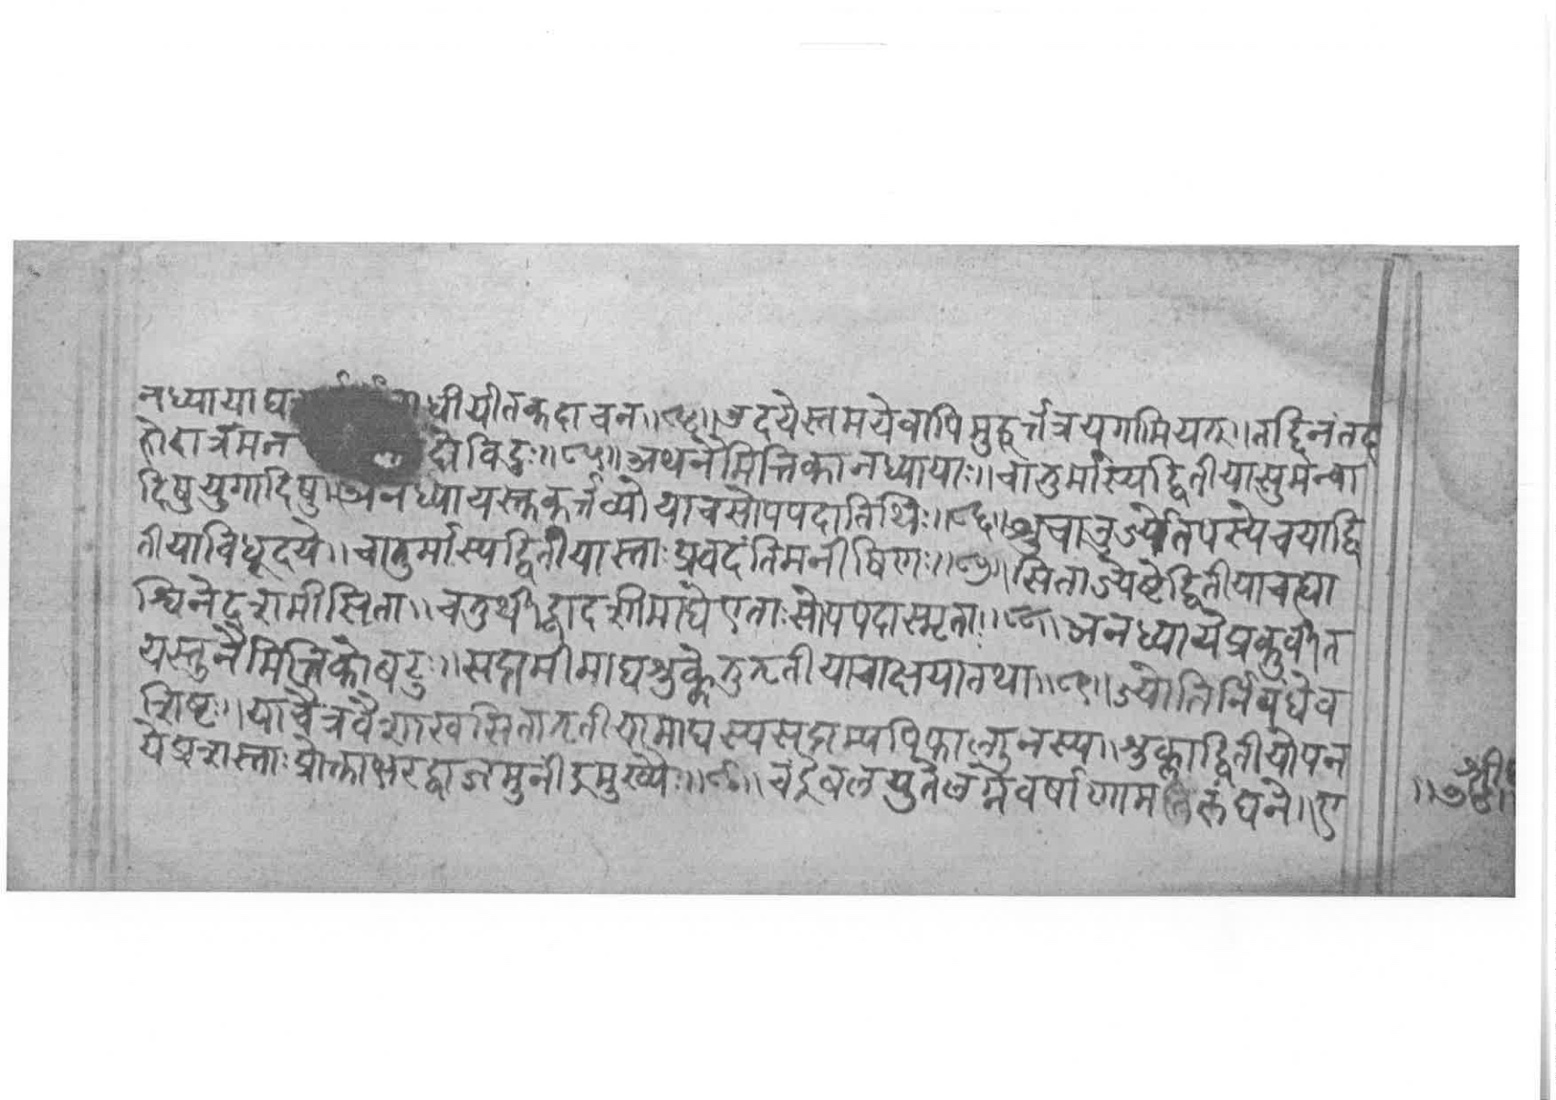 नध्यायाघ धीयीतकदाचन॥८४॥उदयेस्तमयेवापिमुहूर्त्तत्रयगामियत्॥तद्दिनंतद
होरात्रमन दोविदुः॥८५॥अथनैमित्तिकानध्यायाः॥चातुर्मास्यद्वितीयासुमन्वा
दिषुयुगादिषु॥अनध्यायस्तकर्त्तव्योयाचसोपपदातिथिः॥८६॥शुचावुर्ज्येतपस्येचयाद्वि
तीयाविधूदये॥चातुर्मास्यद्वितीयास्ताःप्रवदंतिमनीषिणः॥८७॥सिताज्येष्टेद्वितीयाचह्या
श्विनेदशमीसिता॥चतुर्थीद्वादशीमाघेएताःसोपपदास्मृताः॥८८॥अनध्यायंप्रकुर्वीत
यस्तुनैमित्तिकोबटुः॥सप्तमीमाघशुक्लेतुतृतीयाचाक्षयातथा॥८९॥ज्योतिर्निबंधेव
शिष्टः॥याचैत्रवैशाखसितातृतीयामाघस्यसप्तम्यपिफाल्गुनस्य॥शुक्लाद्वितीयोपन
येप्रशस्ताःप्रोक्ताक्षरद्वाजमुनींद्रमुख्यैः॥९०॥चंद्रेबलयुतेलग्नेवर्षाणाम लंघने॥ए
॥श्री